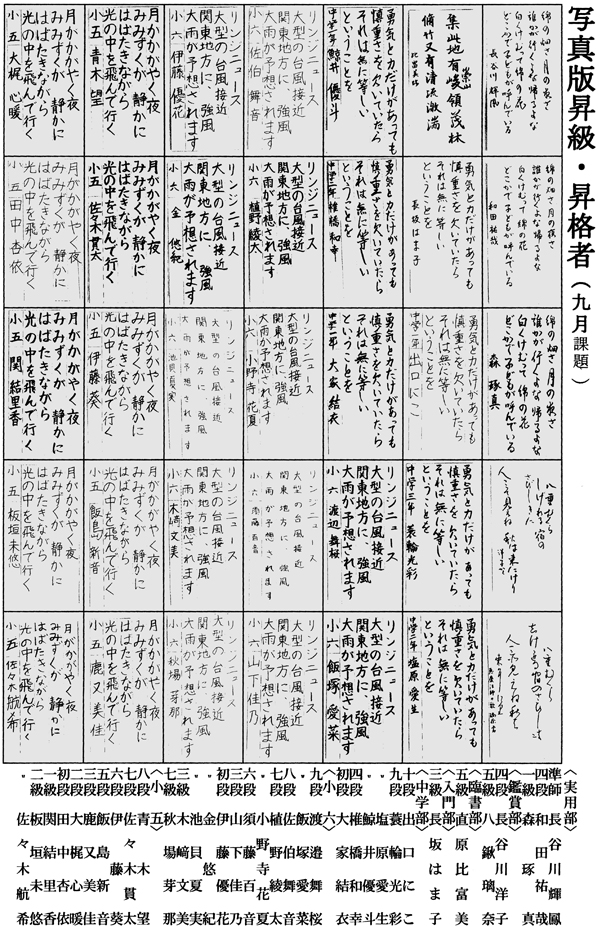 写真版昇級・昇格者（九月課題）
綿の畑さ月の夜さ
誰が行くよな帰るよな
白くけむって綿の花
どこかで子どもが呼んでいる
集此地有崇山峻領茂林
脩竹又有清流激湍
勇気と力だけがあっても
慎重さを欠いていたら
それは無に等しい
ということを
中学一年 鯨井 優斗
リンジニュース
大型の台風接近
関東地方に 強風
大雨が予想されます
小六 佐伯 舞音
リンジニュース
大型の台風接近
関東地方に 強風
大雨が予想されます
小六 伊藤 優花
月がかがやく夜
みみずくが 静かに
はばたきながら
光の中を飛んで行く
小五 青木 望
月がかがやく夜
みみずくが 静かに
はばたきながら
光の中を飛んで行く
小五 大梶 心暖
綿の畑さ月の夜さ
誰かが行くよな帰るよな
白くけむって綿の花
どこかで子どもが呼んでいる
和田祐哉
勇気と力だけがあっても
慎重さを欠いていたら
それは無に等しい
ということを
長坂はま子
勇気と力だけがあっても
慎重さを欠いていたら
それは無に等しい
ということを
椎橋和幸
リンジニュース
大型の台風接近
関東地方に 強風
大雨が予想されます
小六 植野綾太
リンジニュース
大型の台風接近
関東地方に 強風
大雨が予想されます
小六 金 悠紀
月がかがやく夜
みみずくが 静かに
はばたきながら
光の中を飛んで行く
小五 佐々木貫太
月がかがやく夜
みみずくが 静かに
はばたきながら
光の中を飛んで行く
小五 田中 杏依
綿の畑さ月の夜さ
誰が行くよな帰るよな
白くけむって綿の花
どこかで子どもが呼んでいる
森 琢真
勇気と力だけがあっても
慎重さを欠いていたら
それは無に等しい
ということを
出口にこ
勇気と力だけがあっても
慎重さを欠いていたら
それは無に等しい
ということを
大家 結衣
リンジニュース
大型の台風接近
関東地方に 強風
大雨が予想されます
小六 小野寺 花夏
リンジニュース
大型の台風接近
関東地方に 強風
大雨が予想されます
月がかがやく夜
みみずくが 静かに
はばたきながら
光の中を飛んで行く
小五 伊藤 葵
月がかがやく夜
みみずくが 静かに
はばたきながら
光の中を飛んで行く
小五 関 結里香
勇気と力だけがあっても
慎重さを欠いていたら
それは無に等しい
ということを
中学三年 蓑輪光彩
リンジニュース
大型の台風接近
関東地方に 強風
大雨が予想されます
小六 渡辺 舞桜
リンジニュース
大型の台風接近
関東地方に 強風
大雨が予想されます
リンジニュース
大型の台風接近
関東地方に 強風
大雨が予想されます
小六 木崎 文美
月がかがやく夜
みみずくが 静かに
はばたきながら
光の中を飛んで行く
小五 飯島 新音
月がかがやく夜
みみずくが 静かに
はばたきながら
光の中を飛んで行く
小五 板垣 未悠
勇気と力だけがあっても
慎重さを欠いていたら
それは無に等しい
ということを
中学二年 塩原 愛生
リンジニュース
大型の台風接近
関東地方に 強風
大雨が予想されます
小六 飯塚 愛菜
リンジニュース
大型の台風接近
関東地方に 強風
大雨が予想されます
小六 山下佳乃
リンジニュース
大型の台風接近
関東地方に 強風
大雨が予想されます
小六 秋場 芽那
月がかがやく夜
みみずくが 静かに
はばたきながら
光の中を飛んで行く
小五 鹿又 美佳
月がかがやく夜
みみずくが 静かに
はばたきながら
光の中を飛んで行く
小五 佐々木航希
〈実用部〉
準師 長谷川輝鳳
四段 和田祐哉
一級 森 琢真
〈鑑賞部〉
四段 長谷川洋子
五級 八鍬璃奈
〈臨書部〉
五級 直原比富美
〈入門部〉
三級 長坂はま子
〈中学部〉
十段 出口にこ
九段 蓑輪光彩
〃 塩原愛生
〃 鯨井優斗
四段 椎橋和幸
初段 大家結衣
〈小六〉
九段 渡邉舞桜
〃 飯塚愛菜
八段 佐伯舞音
七段 植野綾太
〃 小野寺花夏
六段 須藤百音
三段 山下佳乃
〃 伊藤優花
〃 金 悠紀
木﨑文美
秋場芽那
〈小五〉
八段 青木 望
七段 佐々木貫太
六段 伊藤 葵
五段 飯島新音
三段 鹿又美佳
二段 大梶心暖
初段 田中杏依
一級 関 結里香
二級 板垣未悠
〃 佐々木航希